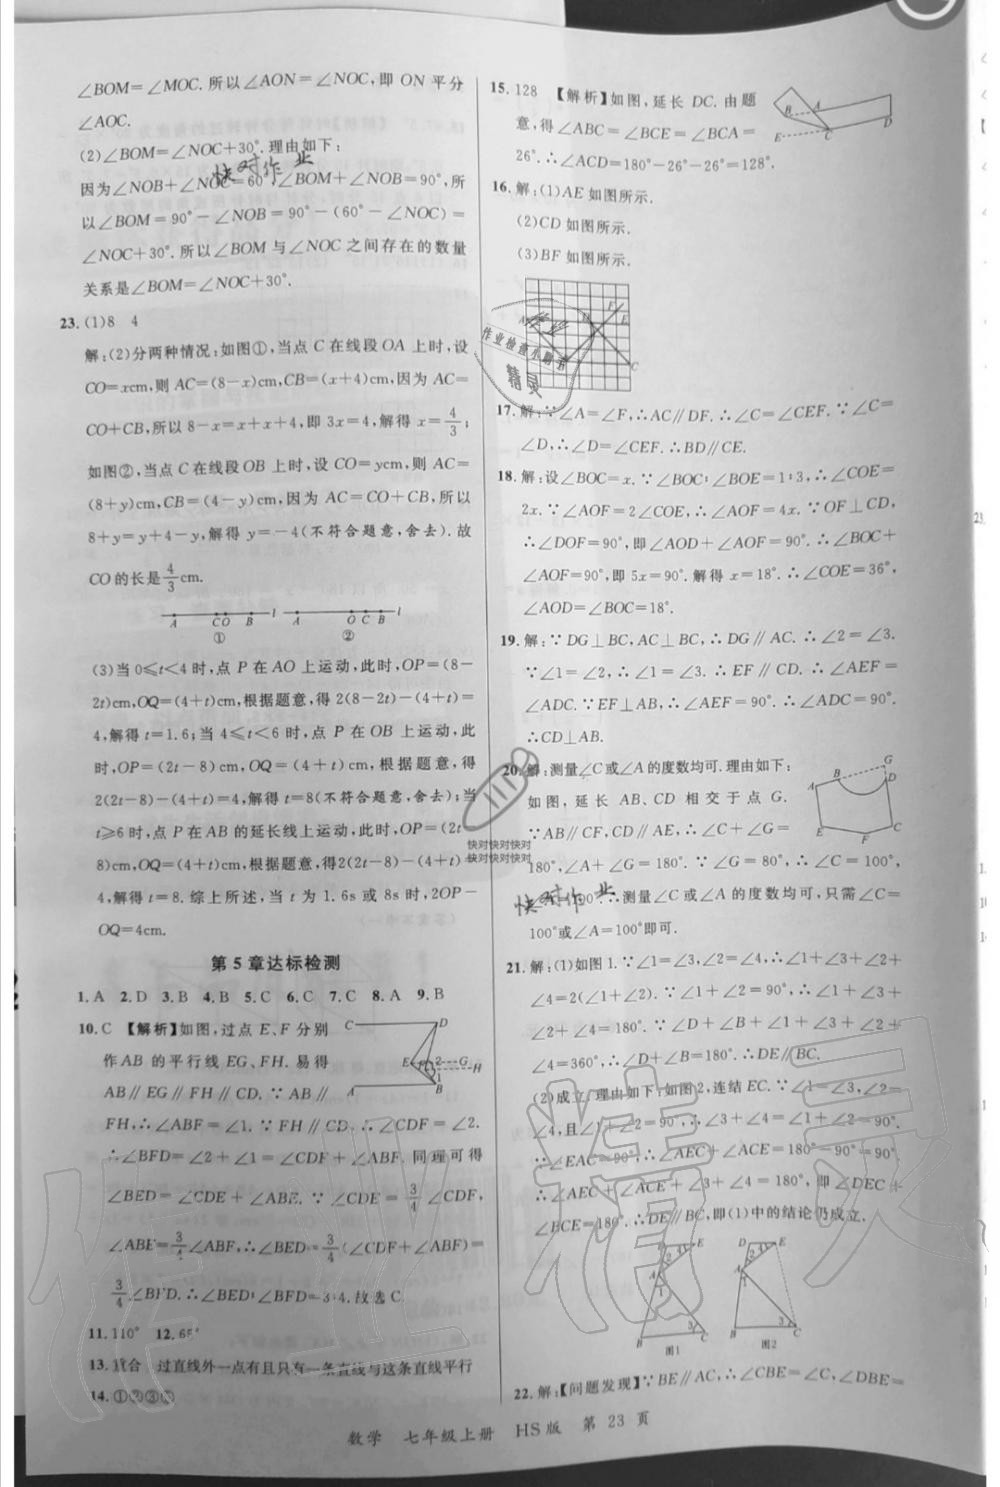 ∠BOM=∠MOC.所以∠AON=∠NOC,即 ON 平分
∠AOC.
(2)∠BOM=∠NOC+30°.理由如下:
因为∠NOB+∠NOC=60°,∠BOM+∠NOB=90°,所
以∠BOM=90°-∠NOB=90°-(60°-∠NOC)=
∠NOC+30°.所以∠BOM 与∠NOC 之间存在的数量
关系是∠BOM=∠NOC+30°.
23.(1)8 4
解:(2)分两种情况:如图①,当点 C 在线段 OA 上时,设
CO=xcm,则 AC=(8-x)cm,CB=(x+4)cm,因为 AC=
CO+CB,所以 8-x=x+x+4,即 3x=4,解得 x=4/3;
如图②,当点 C 在线段 OB 上时,设 CO=ycm,则 AC=
(8+y)cm,CB=(4-y)cm,因为 AC=CO+CB,所以
8+y=y+4-y,解得 y=-4(不符合题意,舍去).故
CO 的长是4/3cm.
A CO B l A O C B l
① ②
(3)当 0≤t<4 时,点 P 在 AO 上运动,此时,OP=(8-
2t)cm,OQ=(4+t)cm,根据题意,得 2(8-2t)-(4+t)=
4,解得 t=1.6;当 4≤t<6 时,点 P 在 OB 上运动,此
时,OP=(2t-8)cm,OQ=(4+t)cm,根据题意,得
2(2t-8)-(4+t)=4,解得 t=8(不符合题意,舍去);当
t≥6 时,点 P 在 AB 的延长线上运动,此时,OP=(2t-
8)cm,OQ=(4+t)cm,根据题意,得 2(2t-8)-(4+t)=
4,解得 t=8.综上所述,当 t 为 1.6s 或 8s 时,2OP-
OQ=4cm.
第 5 章达标检测
1.A 2.D 3.B 4.B 5.C 6.C 7.C 8.A 9.B
10.C 【解析】如图,过点 E、F 分别
作 AB 的平行线 EG、FH.易得
AB∥EG∥FH∥CD.∵AB∥
FH,∴∠ABF=∠1.∵FH∥CD,∴∠CDF=∠2.
∴∠BFD=∠2+∠1=∠CDF+∠ABF.同理可得
∠BED=∠CDE+∠ABE.∵∠CDE=3/4∠CDF,
∠ABE=3/4∠ABF,∴∠BED=3/4(∠CDF+∠ABF)=
3/4∠BFD.∴∠BED∶∠BFD=3∶4.故选 C.
C D E F 2 G H 1 A B
11.110° 12.65°
13.重合 过直线外一点有且只有一条直线与这条直线平行
15.128 【解析】如图,延长 DC.由题
意,得∠ABC=∠BCE=∠BCA=
26°.∴∠ACD=180°-26°-26°=128°.
B A E C D
16.解:(1)AE 如图所示.
(2)CD 如图所示.
(3)BF 如图所示.
F E C
17.解:∵∠A=∠F,∴AC∥DF.∴∠C=∠CEF.∵∠C=
∠D,∴∠D=∠CEF.∴BD∥CE.
18.解:设∠BOC=x.∵∠BOC∶∠BOE=1∶3,∴∠COE=
2x.∵∠AOF=2∠COE,∴∠AOF=4x.∵OF⊥CD,
∴∠DOF=90°,即∠AOD+∠AOF=90°.∴∠BOC+
∠AOF=90°,即 5x=90°.解得 x=18°.∴∠COE=36°,
∠AOD=∠BOC=18°.
19.解:∵DG⊥BC,AC⊥BC,∴DG∥AC.∴∠2=∠3.
∵∠1=∠2,∴∠1=∠3.∴EF∥CD.∴∠AEF=
∠ADC.∵EF⊥AB,∴∠AEF=90°.∴∠ADC=90°.
∴CD⊥AB.
20.解:测量∠C或∠A的度数均可.理由如下:
如图,延长 AB、CD 相交于点 G.
∵AB∥CF,CD∥AE,∴∠C+∠G=
180°,∠A+∠G=180°.∵∠G=80°,∴∠C=100°,
∴测量∠C或∠A 的度数均可,只需∠C=
100°或∠A=100°即可.
B G D E F C
21.解:(1)如图 1.∵∠1=∠3,∠2=∠4,∴∠1+∠3+∠2+
∠4=2(∠1+∠2).∵∠1+∠2=90°,∴∠1+∠3+
∠2+∠4=180°.∵∠D+∠B+∠1+∠3+∠2+
∠4=360°,∴∠D+∠B=180°.∴DE∥BC.
(2)成立.理由如下:如图 2,连结 EC.∵∠1=∠3,∠2=
∠4,且∠1+∠2=90°,∴∠3+∠4=∠1+∠2=90°.
∵∠EAC=90°,∴∠AEC+∠ACE=180°-90°=90°.
∴∠AEC+∠ACE+∠3+∠4=180°,即∠DEC+
∠BCE=180°.∴DE∥BC,即(1)中的结论仍成立.
图1 图2
22.解:【问题发现】∵BE∥AC,∴∠CBE=∠C,∠DBE=
数学 七年级上册 HS版 第 23 页
快对作业
作业检查小助手
精灵
快对快对快对
快对快对快对
快对作业
作业精灵